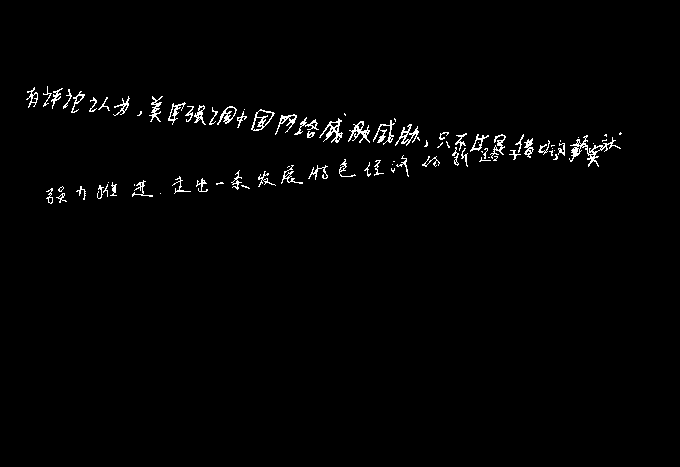 有评论认为，美军强调中国网络威胁威胁，只不过是借口
强力推进.走出一条发展特色经济的新路子